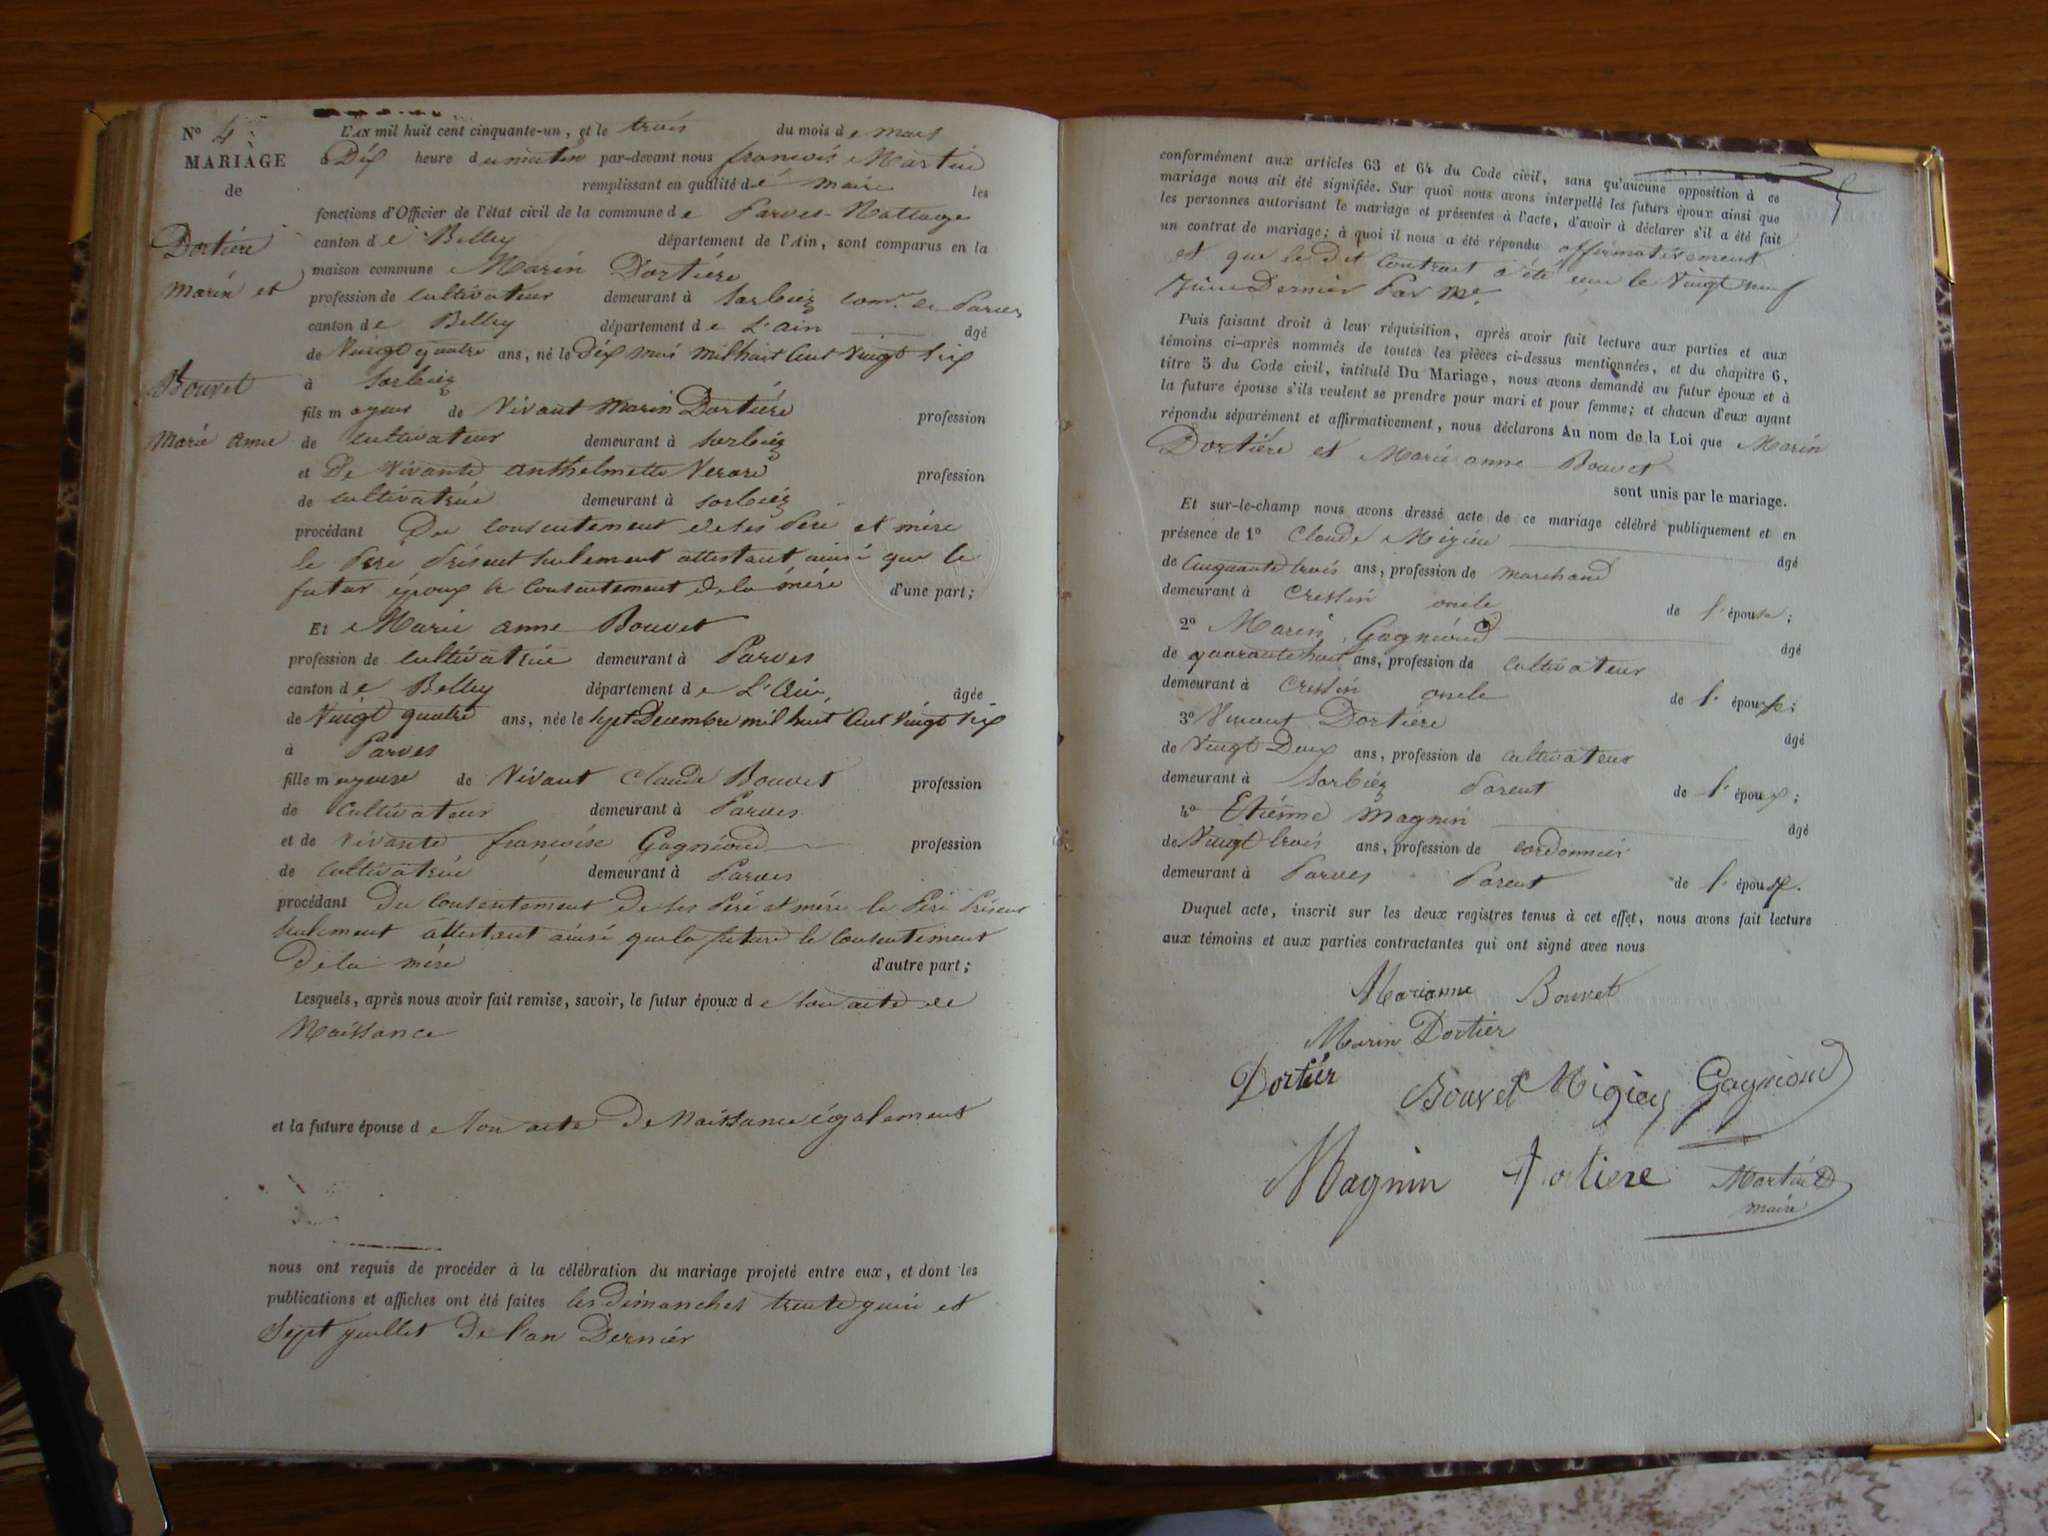 N° 4
MARIAGE
de
Dortiére
Marin et
Bouvet
Marie anne
L'AN mil huit cent cinquante-un, et le trois du mois de mars
à Dix heure du matin par-devant nous francois Martin
remplissant en qualité de maire les
fonctions d'Officier de l'état civil de la commune de Parves-Nattage
canton de Belley département de l'Ain, sont comparus en la
maison commune Marin Dortiére
profession de cultivateur demeurant à Sorbiéz com.ne de Parves
canton de Belley département de L'ain âgé
de Vingt quatre ans, né le Dix mai mil huit Cent Vingt Six
à Sorbiéz
fils mayeur de Vivant Marin Dortiére profession
de cultivateur demeurant à Sorbiéz
et De Vivante anthelmette profession
de cultivatrice demeurant à sorbiéz
procédant Du consentement de ses Pere et mére
le Pere Présent seulement attestant ainsi que le
futur époux le consentement de la mére d'une part;
Et Marie anne Bouvet
profession de cultivatrice demeurant à Parves
canton de Belley département de L'Ain, âgée
de Vingt quatre ans, née le Sept Decembre mil huit Cent Vingt Six
à Parves
fille mayeure de Vivant Claude Bouvet profession
de cultivateur demeurant à Parves
et de vivante francoise Gagnioud profession
de cultivatrice demeurant à Parves
procédant du consentement de ses Peré et mére le Peré Présent
seulement attestant ainsi que la future le consentement
De la mére d'autre part;
Lesquels, après nous avoir fait remise, savoir, le futur époux de son acte de
Naissance
et la future épouse de son acte De Naissance également
nous ont requis de procéder à la célébration du mariage projeté entre eux, et dont les
publications et affiches ont été faites les Dimanches trente juin et
Sept juillet De l'an Dernier
conformément aux articles 63 et 64 du Code civil, sans qu'aucune opposition à ce
mariage nous ait été signifiée. Sur quoi nous avons interpellé les futurs époux ainsi que
les personnes autorisant le mariage et présentes à l'acte, d'avoir à déclarer s'il a été fait
un contrat de mariage; à quoi il nous a été répondu affirmativement
et que le Dit Contrat a été le Vingt neuf
Juin Dernier Par Me.
Puis faisant droit à leur réquisition, après avoir fait lecture aux parties et aux
témoins ci-après nommés de toutes les pièces ci-dessus mentionnées, et du chapitre 6,
titre 5 du Code civil, intitulé Du Mariage, nous avons demandé au futur époux et à
la future épouse s'ils veulent se prendre pour mari et pour femme; et chacun d'eux ayant
répondu séparément et affirmativement, nous déclarons Au nom de la Loi que Marin
Dortiére et Marie anne Bouvet
sont unis par le mariage.
Et sur-le-champ nous avons dressé acte de ce mariage célébré publiquement et en
présence de 1° Claude Migieu âgé
de Cinquante trois ans, profession de marchand
demeurant à Cressin oncle de l'épouse;
2° Marin Gagnioud âgé
de quarante huit ans, profession de cultivateur
demeurant à Cressin oncle de l'épouse;
3° Vincent Dortiére âgé
de Vingt Deux ans, profession de cultivateur
demeurant à Sorbiéz Parent de l'époux;
4° Etiénne Magnin âgé
de Vingt trois ans, profession de cordonnier
demeurant à Parves Parent de l'épouse.
Duquel acte, inscrit sur les deux registres tenus à cet effet, nous avons fait lecture
aux témoins et aux parties contractantes qui ont signé avec nous
Marianne Bouvet
Marin Dortier
Dortier Bouvet Migieu Gagnioud
Magnin Dortiere Martin
maire